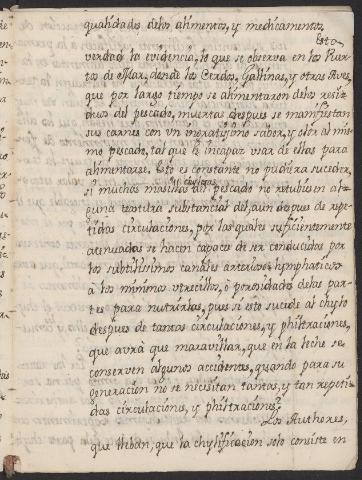 qualidades delos alimentos, y medicamentos.
Esta
verdad la evidencia, lo que se observa en los Puer-
tos de Mar, donde los Cerdos, Gallinas, y otras Aves,
que por largo tiempo se alimentaron delos resi-
duos del pescado, muertas despues se manifiestan
sus carnes con un ingratissimo sabor, y olor al mis-
mo pescado, tal que es incapaz usar de ellas para
alimentarse. Esto es constante no pudiera suceder,
si muchas moleculas del pescado no retubiesen al-
guna textura substancial del, aun despues de repe-
tidas circulaciones, por las quales suficientemente
atenuadas se hacen capaces de ser conducidas por
los subtilissimos canales arteriosos lymphaticos
à los minimos utrecillos, ò porosidades delas par-
tes para nutrirlas, pues si esto sucede al chylo
despues de tantas circulaciones, y philtraciones,
que avrà que maravillar, que en la leche se
conserven algunos accidentes, quando para su
generacion no se necesitan tantas, y tan repeti-
das circulaciones, y philtraciones?
Los Authores,
que que la chylificacion solo consiste en